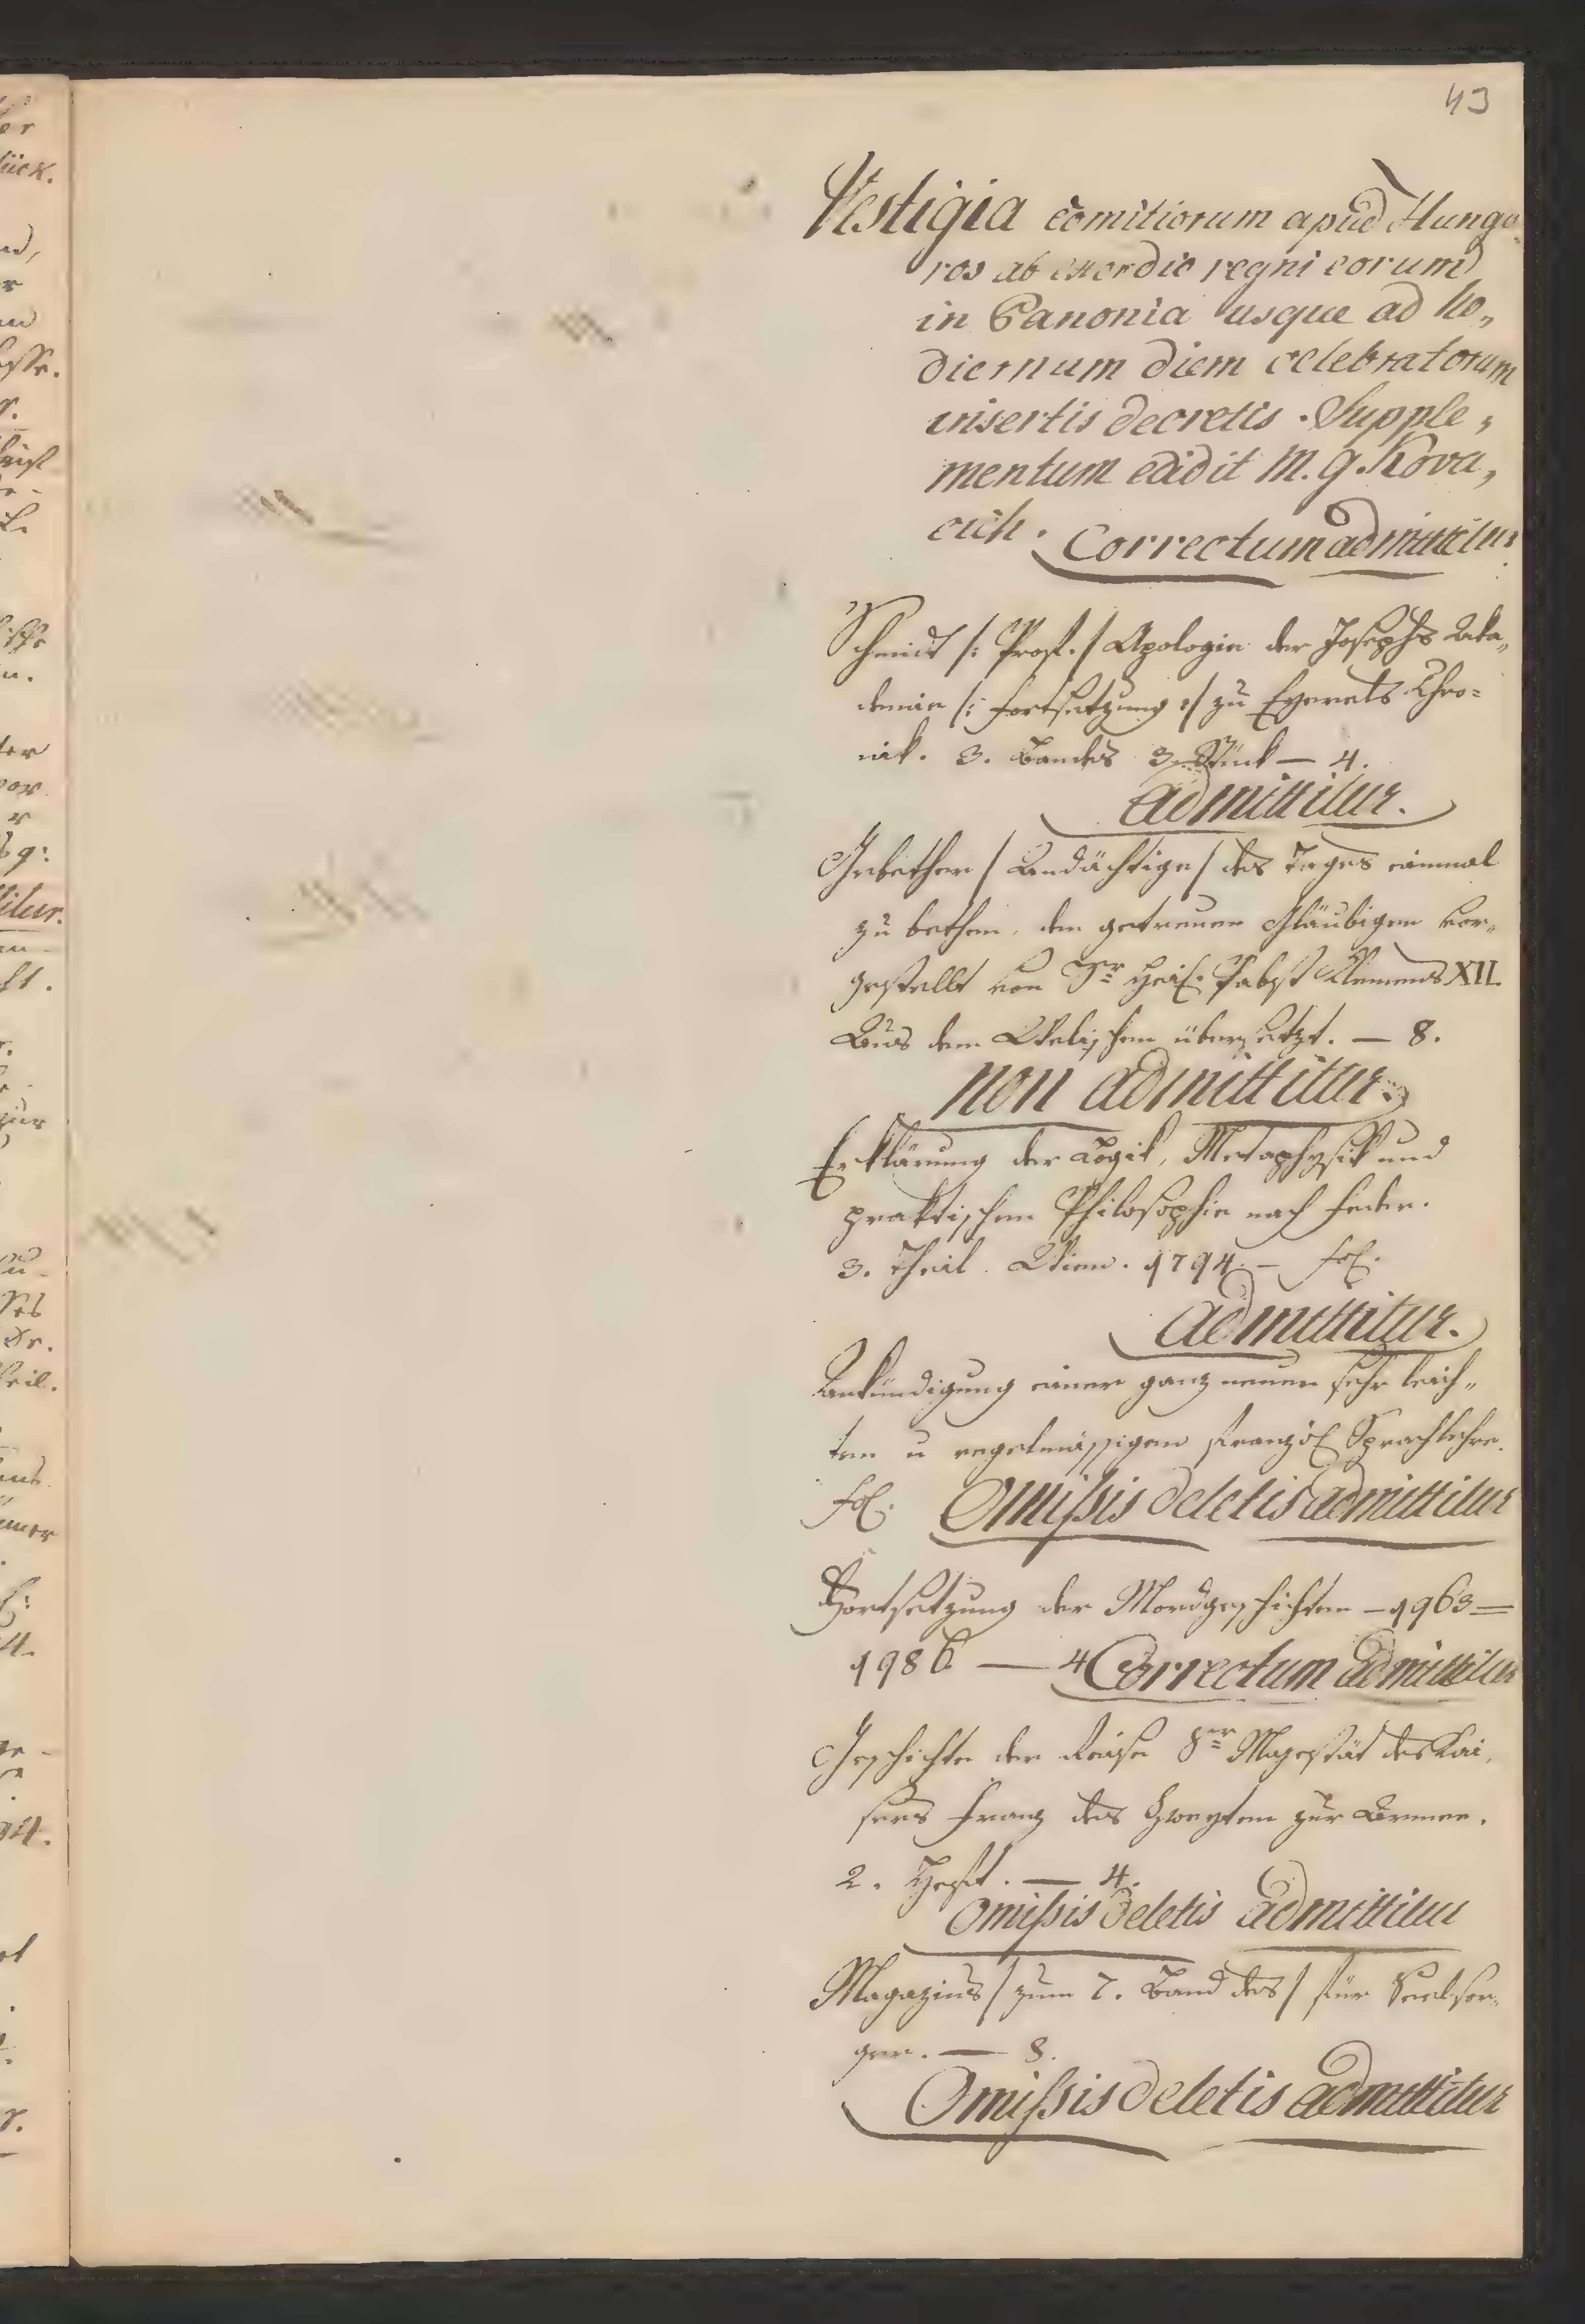 43
Vestigia comitiorum apud Hunga„
ros ab exordio regni eorum
in Panonia usque ad ho„
diernum diem celebratorum
insertis decretis. Supple„
mentum edidit M. G. Kova„
cich. Correctum admittitur
Schmidt /: Prof. / Apologie der Josephs Aka„
demie /: Fortsetzung :/ zu Eyerels Chro=
nik. 3. Bandes 3. Stück — 4.
admittitur.
Gebether / Andächtige / des Tages einmal
zu bethen, den getreuen Gläubigen vor„
gestellt von Sr Heil. Pabst Klemens XII.
Aus dem Welischen übersetzt. — 8.
non admittitur.
Erklärung der Logik, Metaphysik und
praktischen Philosophie nach Feder.
3. Theil. Wien. 1794. — fol.
admittitur.
Ankündigung einer ganz neuen sehr leich„
ten u regelmässigen französ Sprachlehre.
fol. Omissis deletis admittitur
Fortsetzung der Mordgeschichten — 1963 =
1986 — 4 Correctum admittitur
Geschichte der Reise Sr Majestät des Kai„
sers Franz des Zweyten zur Armee.
2. Heft. — 4.
Omissis deletis admittitur
Magazins / zum 7. Band des / für Seelsor„
ger. — 8.
Omissis deletis admittitur